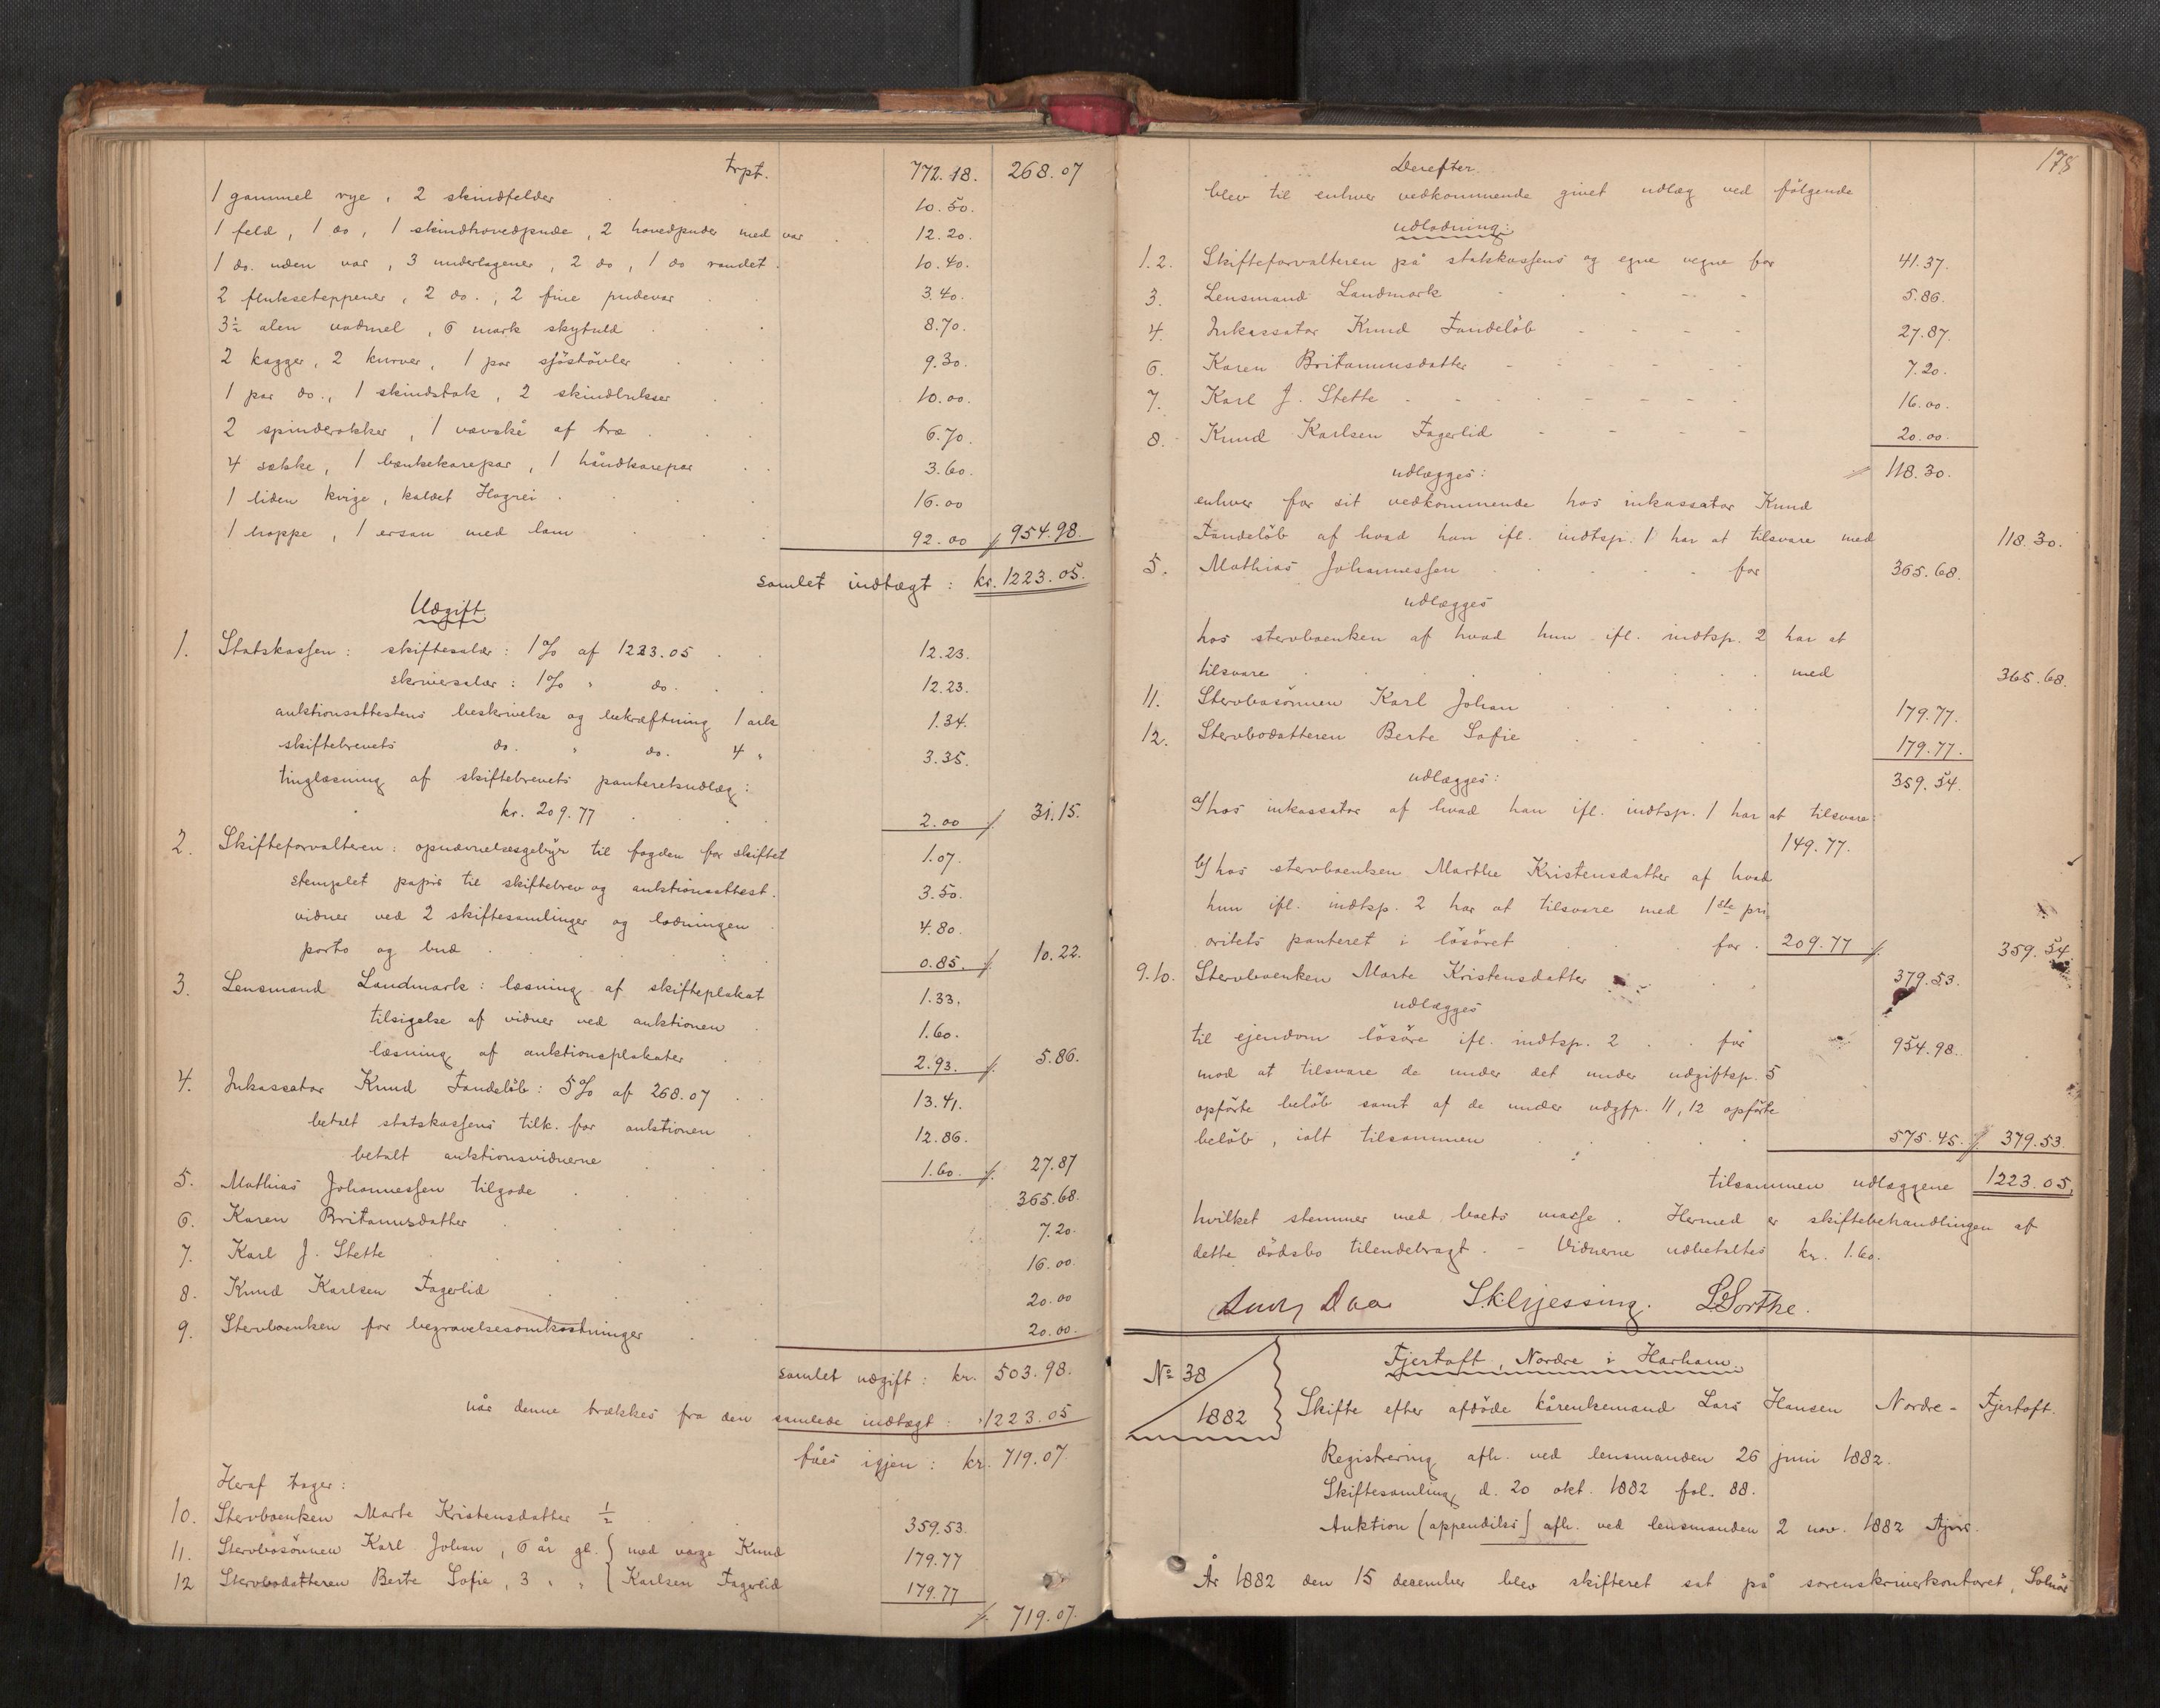 trpt. 772.18. 268.07
1 gammel rye, 2 skindfelder 10.50.
1 feld, 1 do, 1 skindhovedpude, 2 hovedpuder med var 12.20.
1 do. uden var, 3 underlagener, 2 do, 1 do randet. 10.40.
2 flukseteppener, 2 do., 2 fine pudevar 3.40.
3½ alen vadmel, 6 mark skybuld 8.70.
2 kagger, 2 kurver, 1 par sjöstövler 9.30.
1 par do., 1 skindstak, 2 skindbukser 10.00.
2 spinderokker, 1 vævské af træ 6.70.
4 sække, 1 bænkekarepar, 1 håndkarepar 3.60.
1 liden kvige, kaldet Hagrei 16.00
1 hoppe, 1 ersau med lam 92.00 /. 954.98.
samlet indtægt: kr. 1223.05.
Udgift.
1. Statskassen: skiftesalær: 1% af 1223.05 12.23.
skriversalær: 1% " do. 12.23.
auktionsattestens beskrivelse og bekræftning 1 ark 1.34.
skiftebrevets do. " do. 4 " 3.35.
tinglæsning af skiftebrevets panteretsudlæg:
kr. 209.77 2.00 /. 31.15.
2. Skifteforvalteren: opnævnelsesgebyr til fogden for skiftet 1.07.
stemplet papir til skiftebrev og auktionsattest. 3.50.
vidner ved 2 skiftesamlinger og lodningen 4.80.
porto og bud 0.85. /. 10.22.
3. Lensmand Landmark: læsning af skifteplakat 1.33.
tilsigelse af vidner ved auktionen 1.60.
læsning af auktionsplakater 2.93. /. 5.86.
4. Inkassator Knud Tandelöb: 5% af 268.07 13.41.
betalt statskassens tilk. for auktionen 12.86.
betalt auktionsvidnerne 1.60. /. 27.87
5. Mathias Johannessen tilgode 365.68.
6. Karen Britanusdatter 7.20.
7. Karl J. Stette 16.00.
8. Knud Karlsen Fagerlid 20.00
9. Stervboenken for begravelsesomkostninger 20.00.
samlet udgift: kr. 503.98.
når denne trækkes fra den samlede indtægt: " 1223.05
fåes igjen: kr. 719.07.
Heraf tager:
10. Stervboenken Marte Kristensdatter ½ 359.53.
11. Stervbosönnen Karl Johan, 6 år gl. } med værge Knud 179.77
12 Stervbodatteren Berte Sofie, 3 " " { Karlsen Fagerlid 179.77
/. 719.07.
178
Derefter
blev til enhver vedkommende givet udlæg ved fölgende
udlodning:
1.2. Skifteforvalteren på statskassens og egne vegne for 41.37.
3. Lensmand Landmark 5.86.
4. Inkassator Knud Tandelöb 27.87.
6. Karen Britanusdatter 7.20.
7. Karl J. Stette 16.00.
8. Knud Karlsen Fagerlid 20.00.
udlægges: 118.30.
enhver for sit vedkommende hos inkassator Knud
Tandelöb af hvad han ifl. indtsp. 1 har at tilsvare med 118.30.
5. Mathias Johannessen for 365.68.
udlægges
hos stervboenken af hvad hun ifl. indtsp. 2 har at
tilsvare med 365.68.
11. Stervbosönnen Karl Johan 179.77.
12. Stervbodatteren Berte Sofie 179.77.
udlægges: 359.54.
a/ hos inkassator af hvad han ifl. indtsp. 1 har at tilsvare:
149.77.
b/ hos stervboenken Marthe Kristensdatter af hvad
hun ifl. indtsp. 2 har at tilsvare med 1ste pri
oritets panteret i lösöret for 209.77 /. 359.54.
9.10. Stervboenken Marte Kristensdatter 379.53.
udlægges
til ejendom lösöre ifl. indtsp. 2 for 954.98.
mod at tilsvare de under det under udgiftsp. 5
opförte belöb samt af de under udgfp. 11, 12 opförte
belöb, ialt tilsammen 575.45. /. 379.53.
tilsammen udlæggene 1223.05.
hvilket stemmer med boets masse. Hermed er skiftebehandlingen af
dette dödsbo tilendebragt. - Vidnerne udbetaltes kr. 1.60.
Ludv Daa SKlyjessing. LSorthe.
No 38
1882
Fjertoft, Nordre i Harham.
Skifte efter afdöde kårenkemand Lars Hansen Nordre-Fjertoft.
Registrering afh. ved lensmanden 26 juni 1882.
Skiftesamling d. 20 okt. 1882 fol. 88.
Auktion (appendiks) afh. ved lensmanden 2 nov. 1882
År 1882 den 15 december blev skifteret sat på sorenskriverkontoret, Solnör